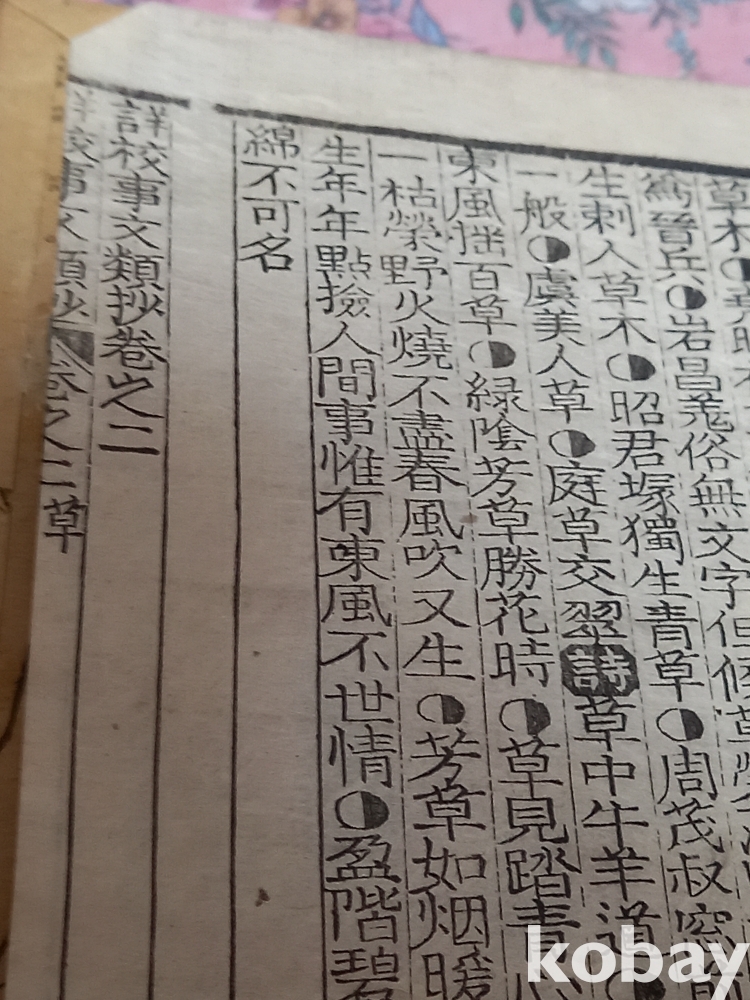 草木
爲晉兵◑岩昌羗俗無文字但候草榮
生刺人草木◑昭君塚獨生青草◑周茂叔窓前
一般◑虞美人草◑庭草交翠詩草中牛羊道◑
東風揺百草◑緑陰芳草勝花時◑草見踏青心
一枯榮野火燒不盡春風吹又生◑芳草如烟暖
生年年點撿人間事惟有東風不世情◑盈階碧
綿不可名
詳校事文類抄卷之二
詳校事文類抄 卷之二 草
kobay